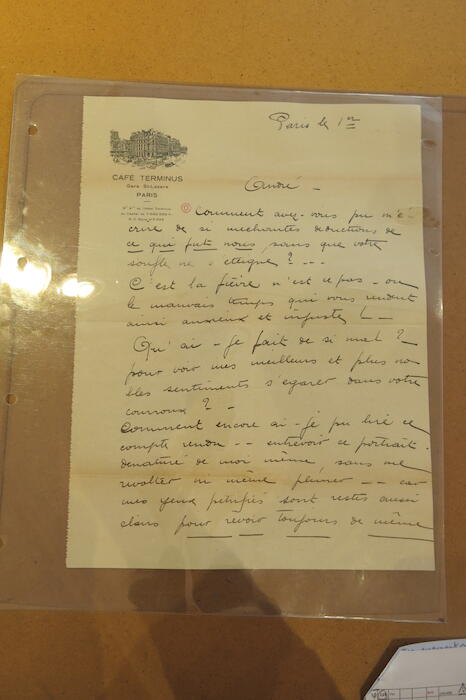 Paris le 1er
CAFÉ TERMINUS
Gare St-Lazare
PARIS
André —
Comment avez-vous pu m'é-
crire de si méchantes déductions de
ce qui fut nous, sans que votre
souffle ne s'éteigne ? - - -
C'est la fièvre n'est ce pas - ou
le mauvais temps qui vous rendent
ainsi anxieux et injuste ! —
Qu'ai - je fait de si mal ?
pour voir mes meilleurs et plus no-
bles sentiments s'égarer dans votre
courroux ? -
Comment encore ai - je pu lire ce
compte rendu - - entrevoir ce portrait
dénaturé de moi même, sans me
révolter ni même pleurer - - car
mes yeux pétrifiés sont restés aussi
clairs pour revoir toujours de même